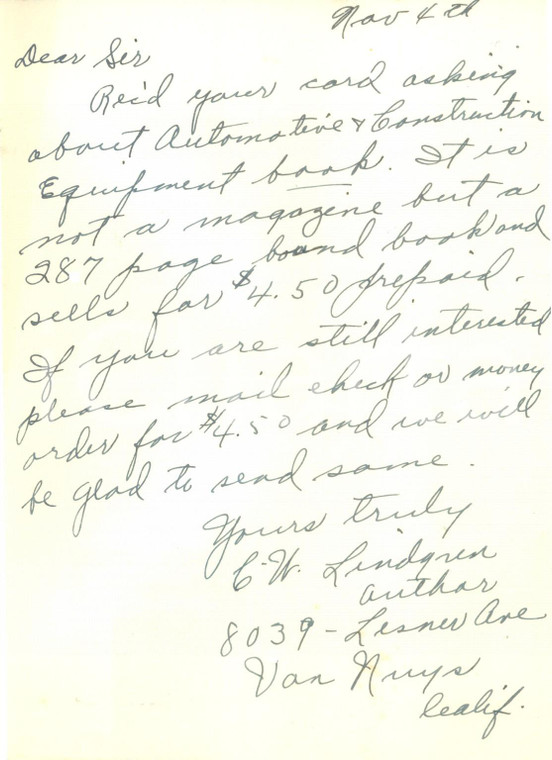 Nov 4th
Dear Sir
Rec'd your card asking
about Automotive & Construction
Equipment book. It is
not a magazine but a
287 page bound book and
sells for $4.50 prepaid.
If you are still interested
please mail check or money
order for $4.50 and we will
be glad to send same.
Yours truly
C.W. Lindgren
author
8039 - Lesner Ave
Van Nuys
Calif.